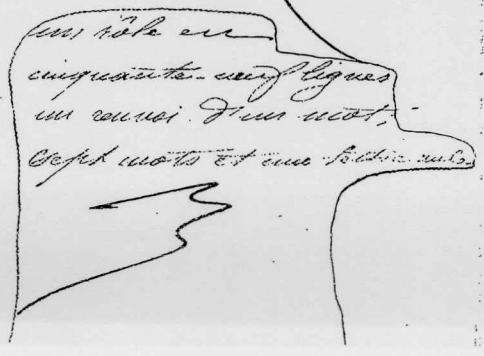 un rôle en
cinquante-neuf lignes
un renvoi d'un mot,
sept mots et une